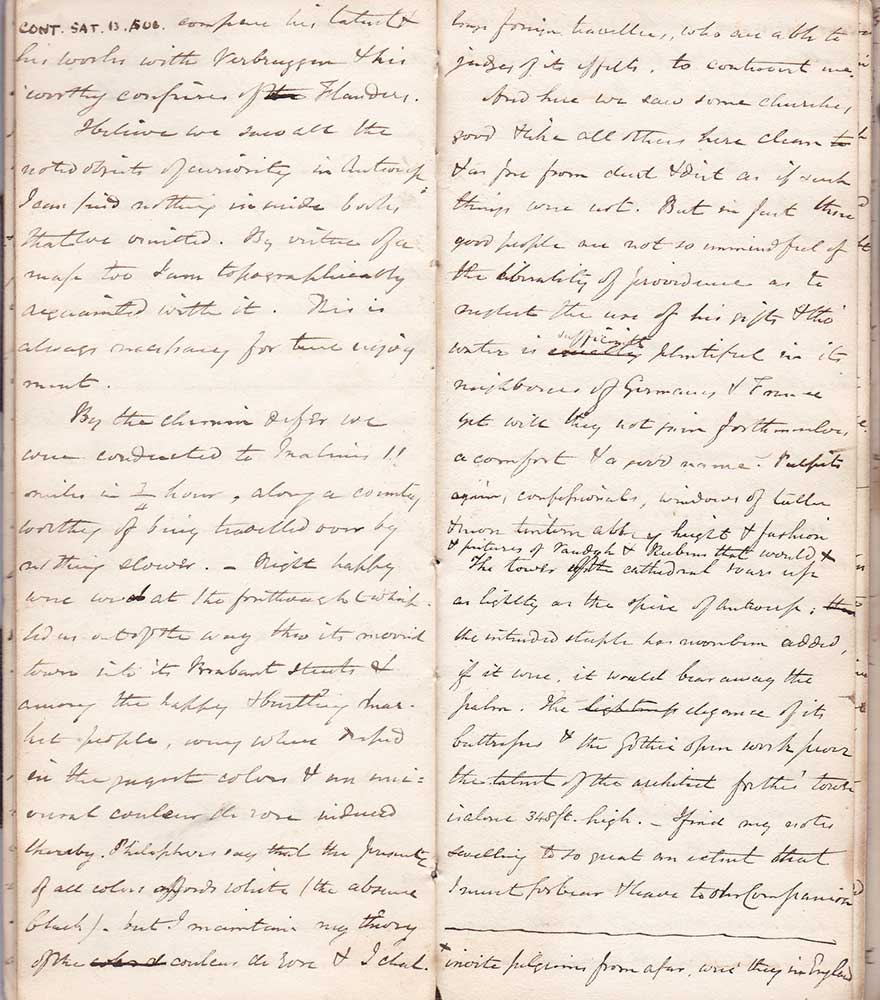 CONT. SAT. 13. AUG. compare his talent &
his works with Verbruggen & his
worthy confrères of the Flanders.
I believe we saw all the
noted objects of curiosity in Antwerp
I can find nothing in guide books
that we omitted. By virtue of a
map too I am topographically
acquainted with it. This is
always necessary for true enjoy
ment.
By the chemin de fer we
were conducted to Malines 11
miles in 3/4 hour, along a country
worthy of being travelled over by
nothing slower. – Right happy
were we at the forethought which
led us out of the way thro its
town into its Brabant streets &
among the happy & bustling mar-
ket people, every where
in the gayest colors & an uni=
versal couleur de rose induced
thereby. Philosophers say that the presence
of all colors affords white (the absence
black). but I maintain my theory
of the couleur de rose & I chal.
lenge foreign travellers, who are able to
judge of its effects, to controvert me.
And here we saw some churches,
good & like all others here clean to
& as free from dust & dirt as if such
things were not. But in fact these
good people are not so unmindful of
the liberality of providence as to
neglect the use of his gifts & tho'
water is equally sufficiently plentiful in its
neighbours of Germany & France
yet will they not gain for themselves
a comfort & a good name. Pulpits
again, confessionals, windows of taller
& more tintern abbey height & fashion
& pictures of Vandyh & Rubens that would x
The tower of the cathedral soars up
as lightly as the spire of Antwerp; the
the intended steeple has never been added,
if it were, it would bear away the
palm. The lightness elegance of its
buttresses & the Gothic open work prove
the talent of the architect for this tower
is alone 348 ft. high. – I find my notes
swelling to so great an extent that
I must forbear & leave to our Companion
x invite pilgrims from afar, were they in England